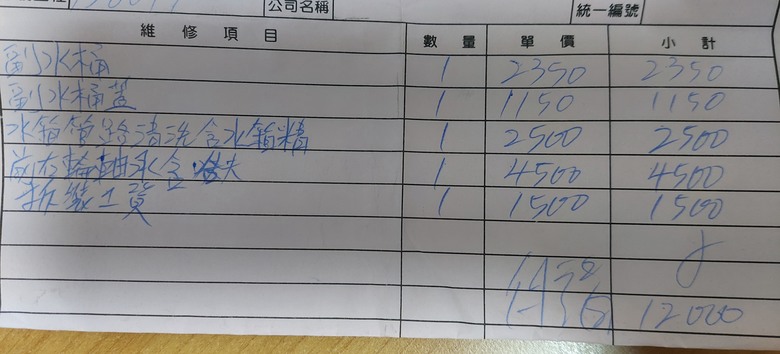 公司名稱 統一編號
維修項目 數量 單價 小計
副水桶 1 2350 2350
副水桶蓋 1 1150 1150
水箱管路清洗含水箱精 1 2500 2500
1 4500 4500
拆裝工資 1 1500 1500
12000